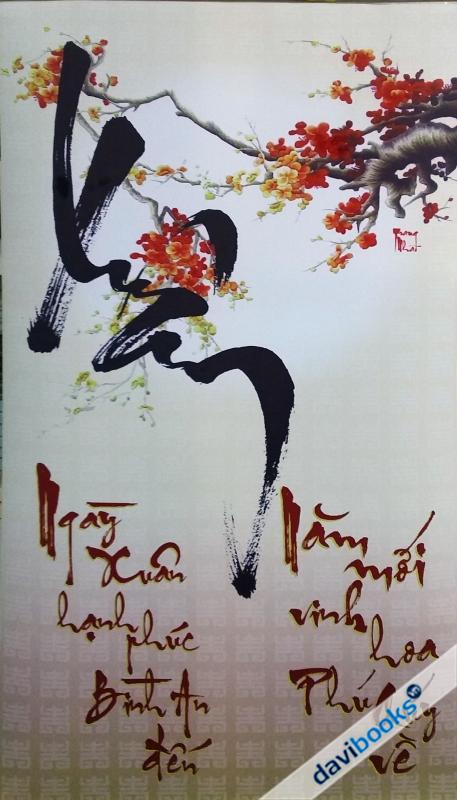 Xuân
Ngày
Xuân
hạnh
phúc
Bình An
đến
Năm
mới
vinh
hoa
Phú
về
davibooks